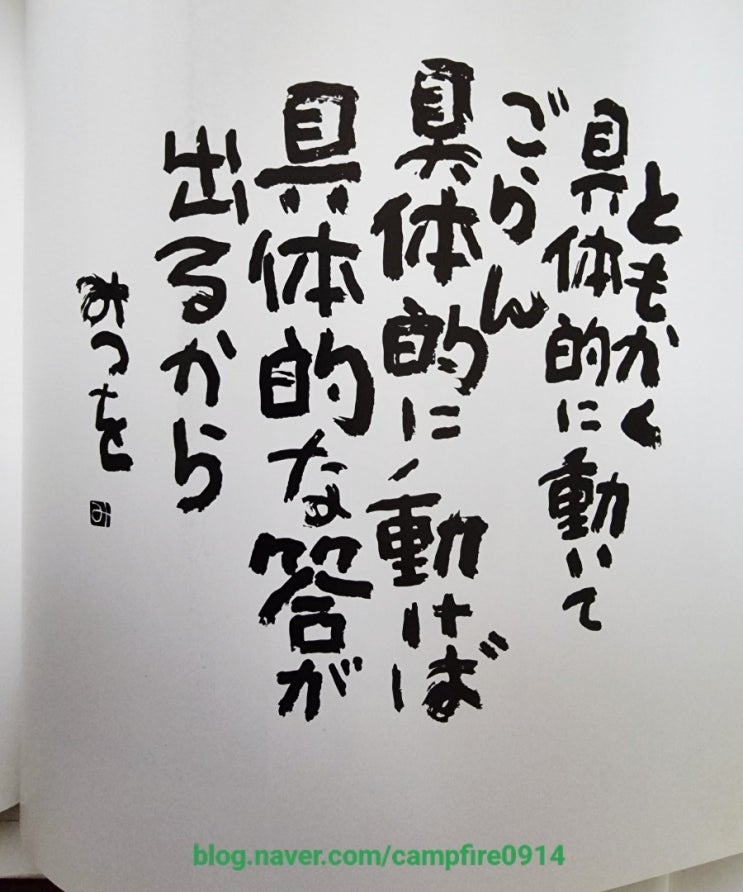 ともかく
具体的に動いて
ごらん
具体的に動けば
具体的な答が
出るから
みつを
み
blog.naver.com/campfire0914